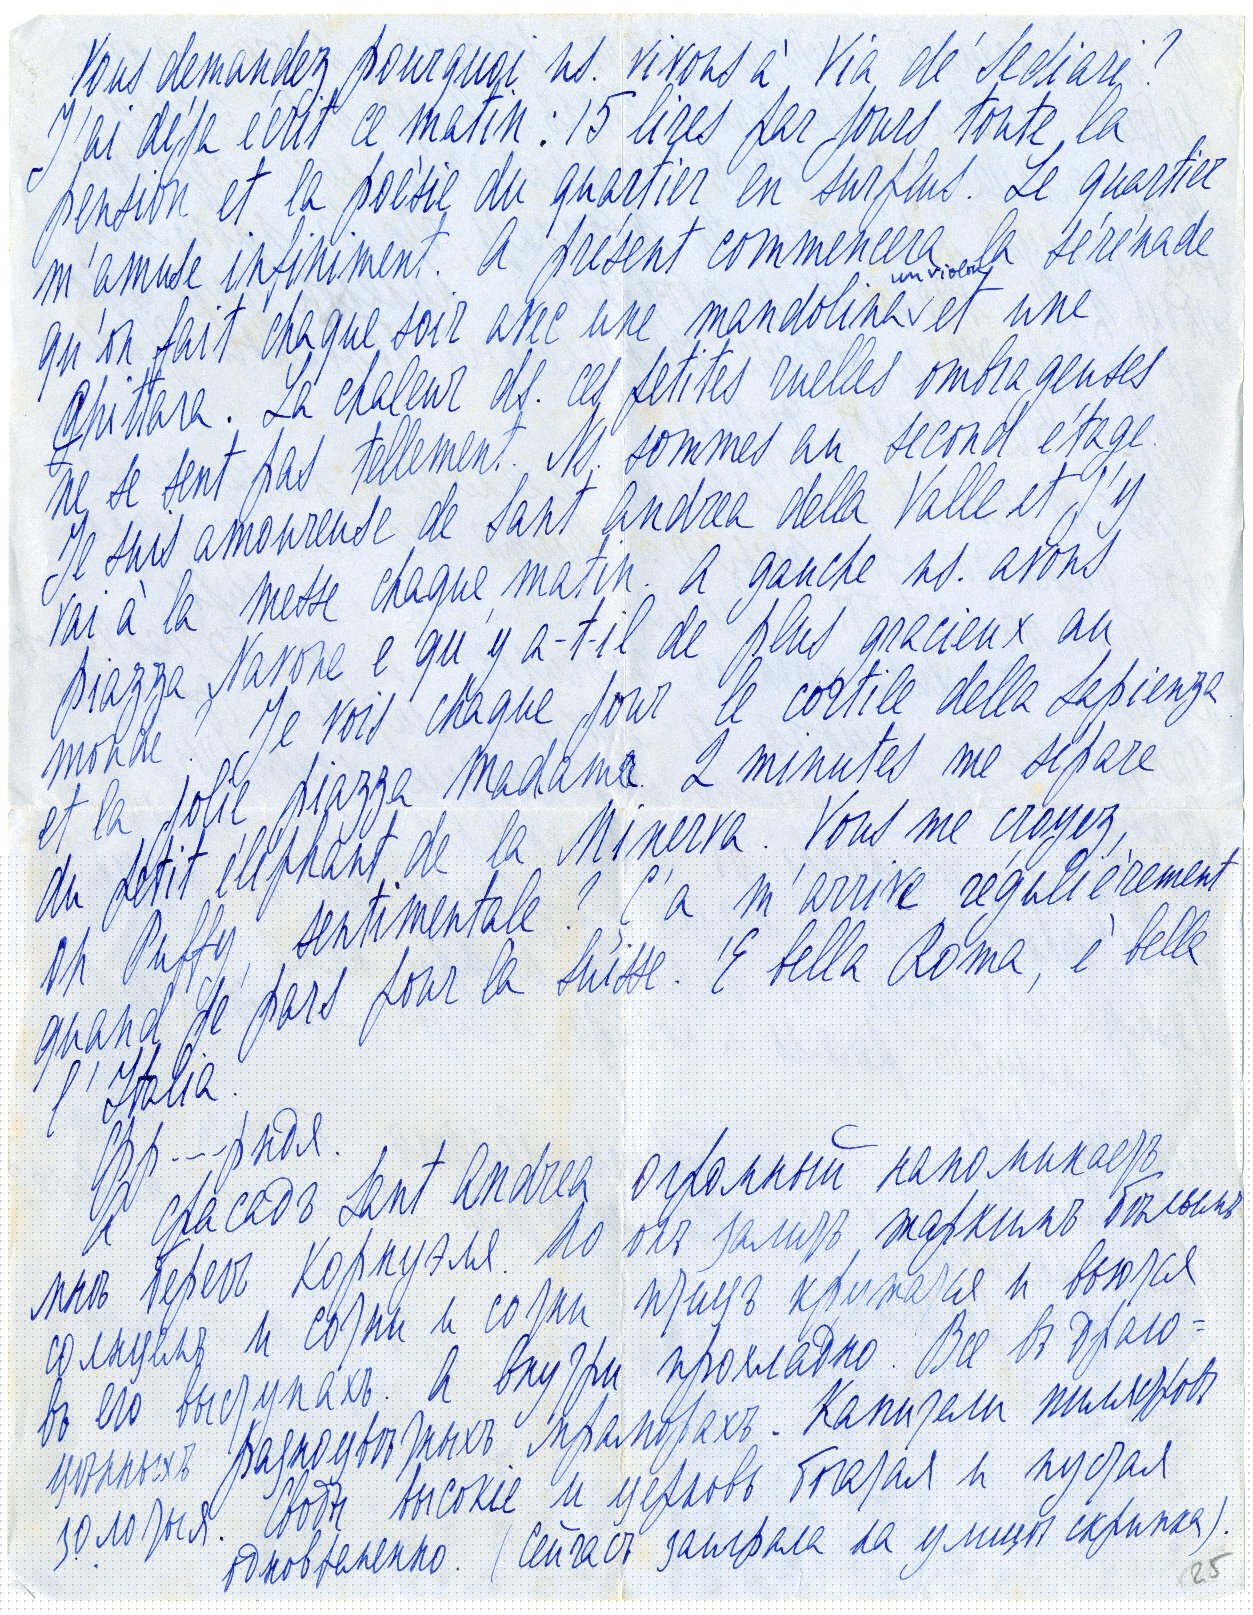 Vous demandez pourquoi ns. vivons à Via de' Sediari?
J'ai déja écrit ce matin: 15 lires par jours toute la
pension et la poésie du quartier en surplus. Le quartier
m'amuse infiniment. A présent commencera la sérénade
qu'on fait chaque soir avec une mandolina un violon et une
Chittara. La chaleur ds. ces petites ruelles ombrageuses
ne se sent pas tellement. Ns. sommes au second étage.
Je suis amoureuse de Sant Andrea della Valle et j'y
vai à la messe chaque matin. A gauche ns. avons
piazza Navone e qu'y a-t-il de plus gracieux au
monde? Je vois chaque jour le cortile della Sapienza
et la jolie piazza Madama. 2 minutes me sépare
du petit éléphant de la Minerva. Vous me croyez,
oh Puffy, sentimentale? Ç'a m'arrive régulièrement
quand je pars pour la Suisse. 'E bella Roma, è bella
l'Italia.
Фр---рндя.
А фасадъ Sant Andrea огромный напоминаетъ
мнѣ берегъ Корнуэля. Но онъ залитъ жаркимъ бѣлымъ
солнцемъ и сотни и сотни птицъ кружатся и вьются
въ его выступахъ. А внутри прохладно. Все въ драго=
цѣнныхъ разноцвѣтныхъ мраморахъ. Капители пилястровъ
золотыя. Своды высокіе и церковь богатая и пустая
одновременно. (Сейчасъ заиграла на улицѣ скрипка).
25